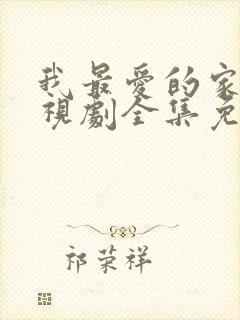 我最愛的家
視劇全集免
祁荣祥